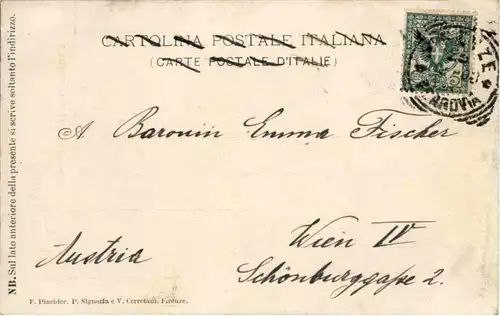 CARTOLINA POSTALE ITALIANA
(CARTE POSTALE D'ITALIE)
A Baronin Emma Fischer
Wien IV
Austria
Schönburggaße 2.
NB. Sul lato anteriore della presente si scrive soltanto l'indirizzo.
F. Pineider. P. Signoria e V. Cerretani. Firenze.